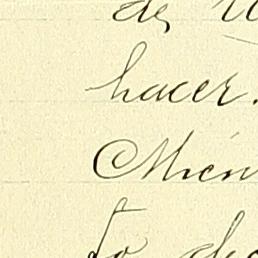 de
hacer.
Mién
to